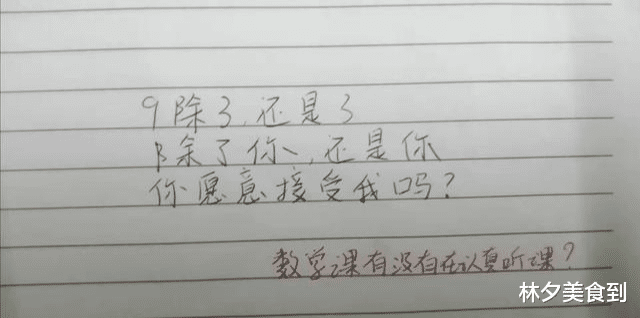 9除3,还是3
除了你,还是你
你愿意接受我吗?
数学课有没有在认真听课?
林夕美食到